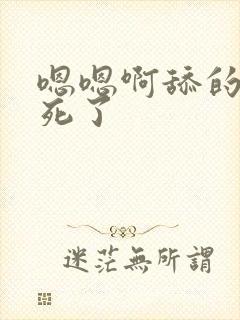 嗯嗯啊舔的
死了
迷茫無所謂